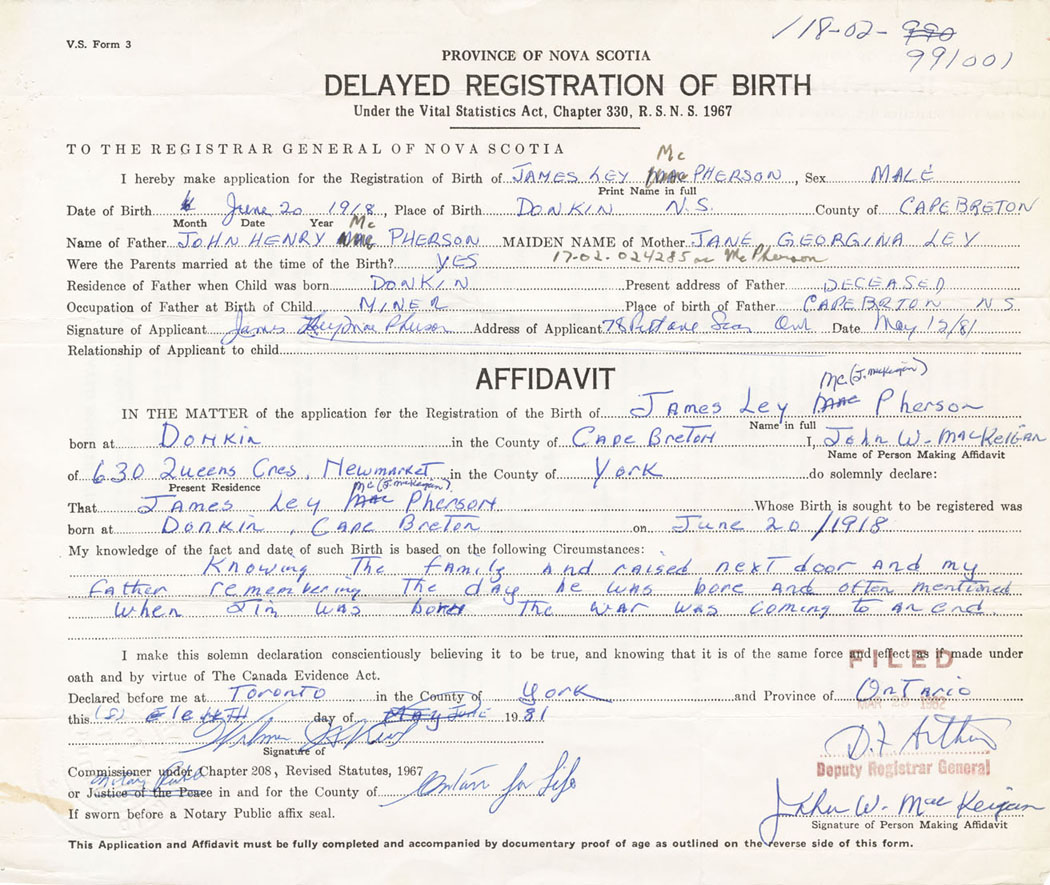 V.S. Form 3
118-02-990
991001
PROVINCE OF NOVA SCOTIA
DELAYED REGISTRATION OF BIRTH
Under the Vital Statistics Act, Chapter 330, R.S.N.S. 1967
TO THE REGISTRAR GENERAL OF NOVA SCOTIA
Mc
I hereby make application for the Registration of Birth of JAMES LEY MAC PHERSON, Sex MALE
Print Name in full
Date of Birth June 20 1918, Place of Birth DONKIN N.S. County of CAPE BRETON
Month Date Year
Mc
Name of Father JOHN HENRY MAC PHERSON MAIDEN NAME of Mother JANE GEORGINA LEY
Were the Parents married at the time of the Birth? YES 17-02-024285 as McPherson
Residence of Father when Child was born DONKIN Present address of Father DECEASED
Occupation of Father at Birth of Child MINER Place of birth of Father CAPE BRTON N S.
Signature of Applicant James Ley Mac Pherson Address of Applicant 78 Ont Date May 12/81
Relationship of Applicant to child
AFFIDAVIT
Mc (J. MacKeigan)
IN THE MATTER of the application for the Registration of the Birth of James Ley Mac Pherson
Name in full
born at Donkin in the County of Cape Breton I, John W. MacKeigan
Name of Person Making Affidavit
of 630 Queens Cres, Newmarket in the County of York do solemnly declare:
Present Residence
Mc (J. MacKeigan)
That James Ley Mac Pherson Whose Birth is sought to be registered was
born at Donkin, Cape Breton on June 20/1918
My knowledge of the fact and date of such Birth is based on the following Circumstances:
Knowing The family and raised next door and my
father remembering The day he was bore and often mentioned
when Jim was born The war was coming to an end.
I make this solemn declaration conscientiously believing it to be true, and knowing that it is of the same force and effect as if made under
FILED
oath and by virtue of The Canada Evidence Act.
Declared before me at Toronto in the County of York and Province of Ontario
this Eleventh day of May June 1981
MAR 1982
D.F. Arthur
Signature of
Deputy Registrar General
Commissioner under Chapter 208, Revised Statutes, 1967
Notary Public
or Justice of the Peace in and for the County of Ontario for Life
If sworn before a Notary Public affix seal.
John W. MacKeigan
Signature of Person Making Affidavit
This Application and Affidavit must be fully completed and accompanied by documentary proof of age as outlined on the reverse side of this form.